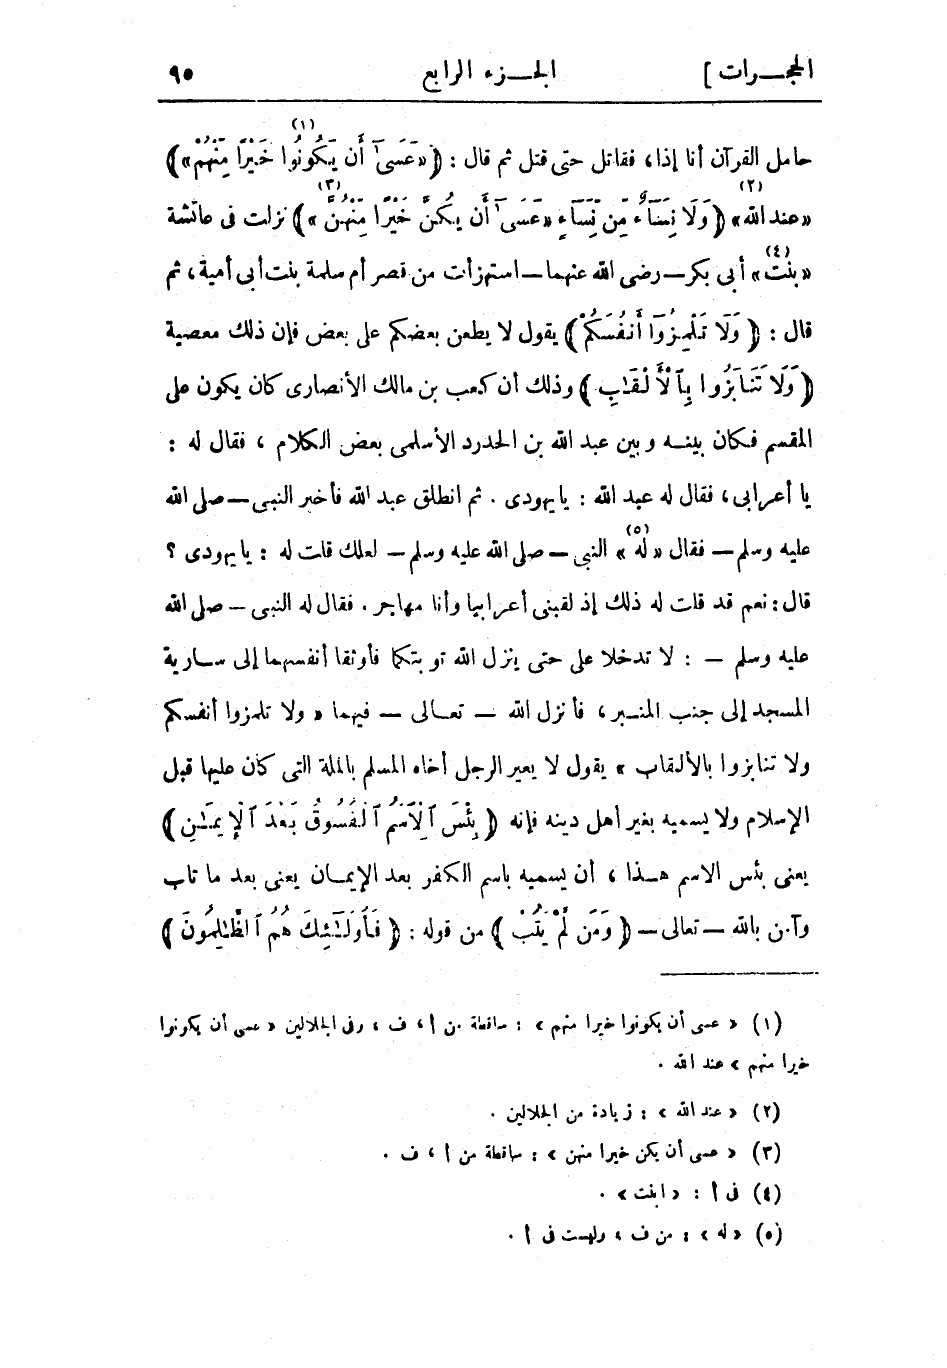 الحجرات ] الجزء الرابع ٩٥
حامل القرآن أنا إذا، فقاتل حتى قتل ثم قال : ﴿ «عَسَىٰٓ أَن يَكُونُوا خَيْرًا مِّنْهُمْ» (١) ﴾
«عند الله» (٢) ﴿ وَلَا نِسَآءٌ مِّن نِّسَآءٍ «عَسَىٰٓ أَن يَكُنَّ خَيْرًا مِّنْهُنَّ» (٣) ﴾ نزلت فى عائشة
«بنت» (٤) أبى بكر — رضى الله عنهما — استهزأت من قصر أم سلمة بنت أبى أمية، ثم
قال : ﴿ وَلَا تَلْمِزُوٓا أَنفُسَكُمْ ﴾ يقول لا يطعن بعضكم على بعض فإن ذلك معصية
﴿ وَلَا تَنَابَزُوا بِٱلْأَلْقَٰبِ ﴾ وذلك أن كعب بن مالك الأنصارى كان يكون على
المقسم فكان بينه وبين عبد الله بن الحدرد الأسلمى بعض الكلام ، فقال له :
يا أعرابى، فقال له عبد الله : يا يهودى . ثم انطلق عبد الله فأخبر النبى — صلى الله
عليه وسلم — فقال «له» (٥) النبى — صلى الله عليه وسلم — لعلك قلت له : يا يهودى ؟
قال : نعم قد قلت له ذلك إذ لقبنى أعرابيا وأنا مهاجر . فقال له النبى — صلى الله
عليه وسلم — : لا تدخلا على حتى ينزل الله توبتكما فأوثقا أنفسهما إلى سارية
المسجد إلى جنب المنبر ، فأنزل الله — تعالى — فيهما « ولا تلمزوا أنفسكم
ولا تنابزوا بالألقاب » يقول لا يعير الرجل أخاه المسلم بالملة التى كان عليها قبل
الإسلام ولا يسميه بغير أهل دينه فإنه ﴿ بِئْسَ ٱلِٱسْمُ ٱلْفُسُوقُ بَعْدَ ٱلْإِيمَٰنِ ﴾
يعنى بئس الاسم هذا ، أن يسميه باسم الكفر بعد الإيمان يعنى بعد ما تاب
وآمن بالله — تعالى — ﴿ وَمَن لَّمْ يَتُبْ ﴾ من قوله : ﴿ فَأُولَٰٓئِكَ هُمُ ٱلظَّٰلِمُونَ ﴾
(١) « عسى أن يكونوا خيرا منهم » : ساقطة من أ ، ف ، وفى الجلالين « عسى أن يكونوا
خيرا منهم » عند الله .
(٢) « عند الله » : زيادة من الجلالين .
(٣) « عسى أن يكن خيرا منهن » : ساقطة من أ ، ف .
(٤) فى أ : « ابنت » .
(٥) « له » : من ف ، وليست فى أ .